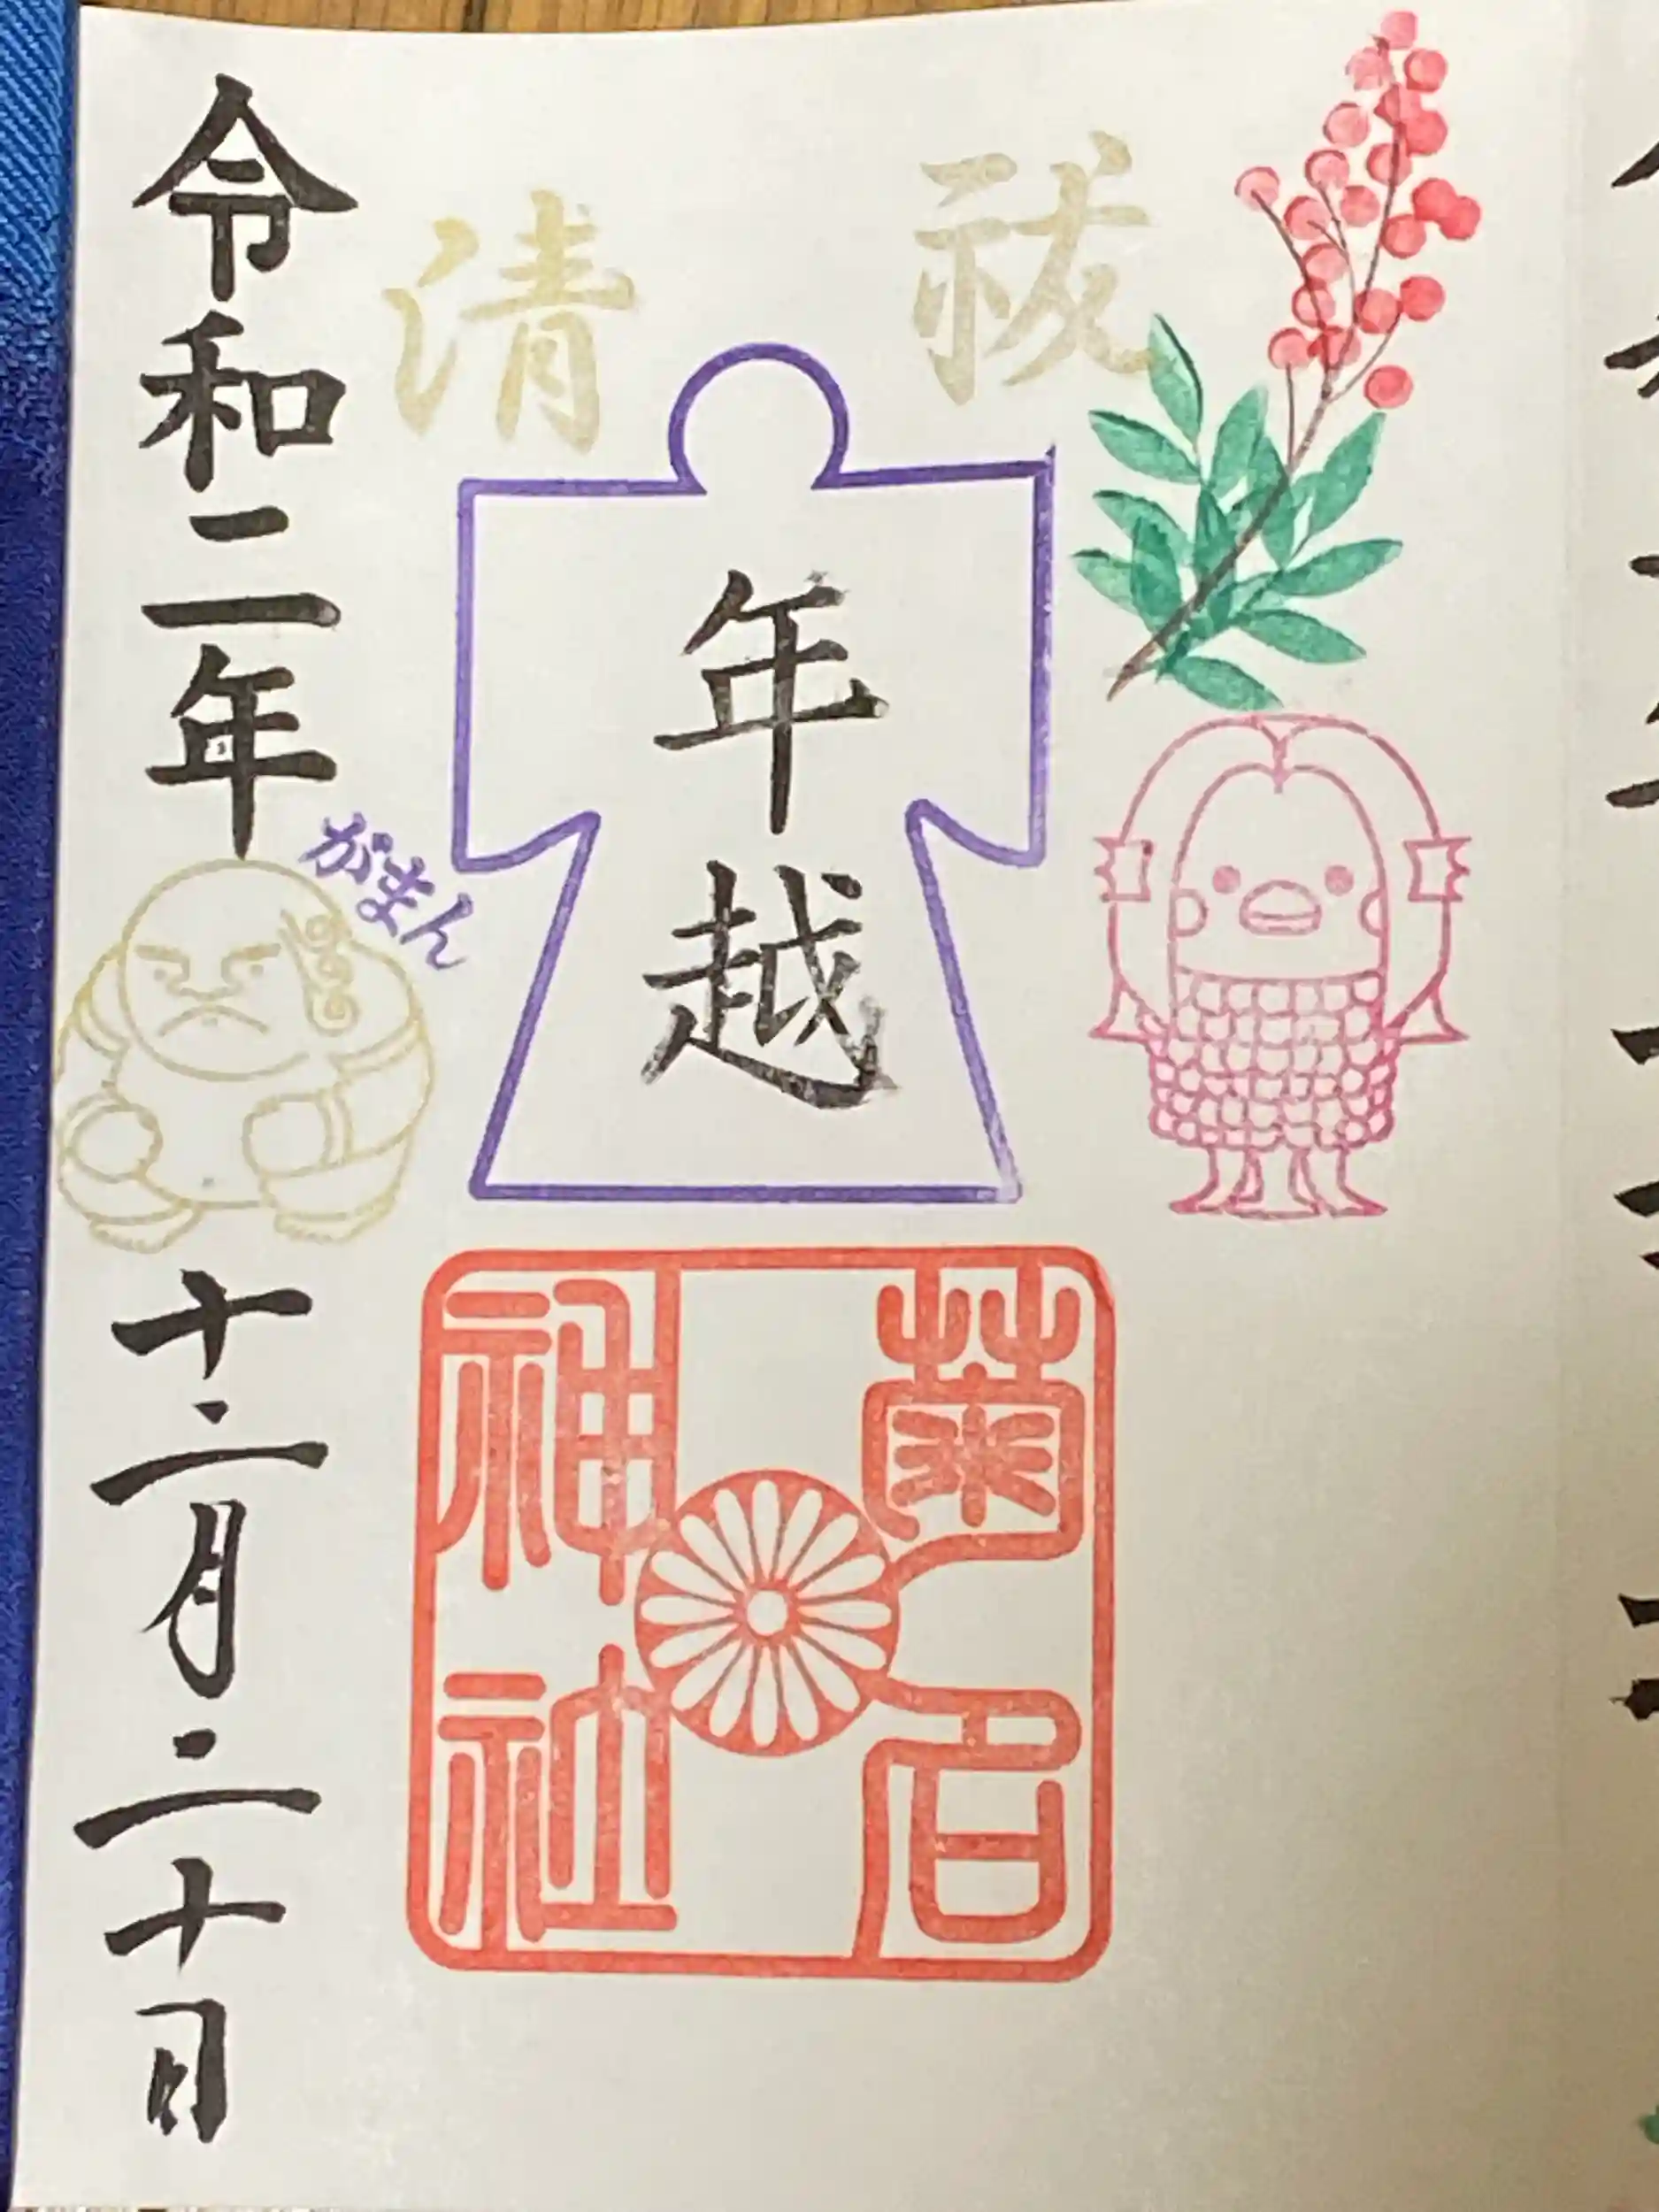 祓
清
年越
菊名
神社
令和二年
がまん
十二月二十日